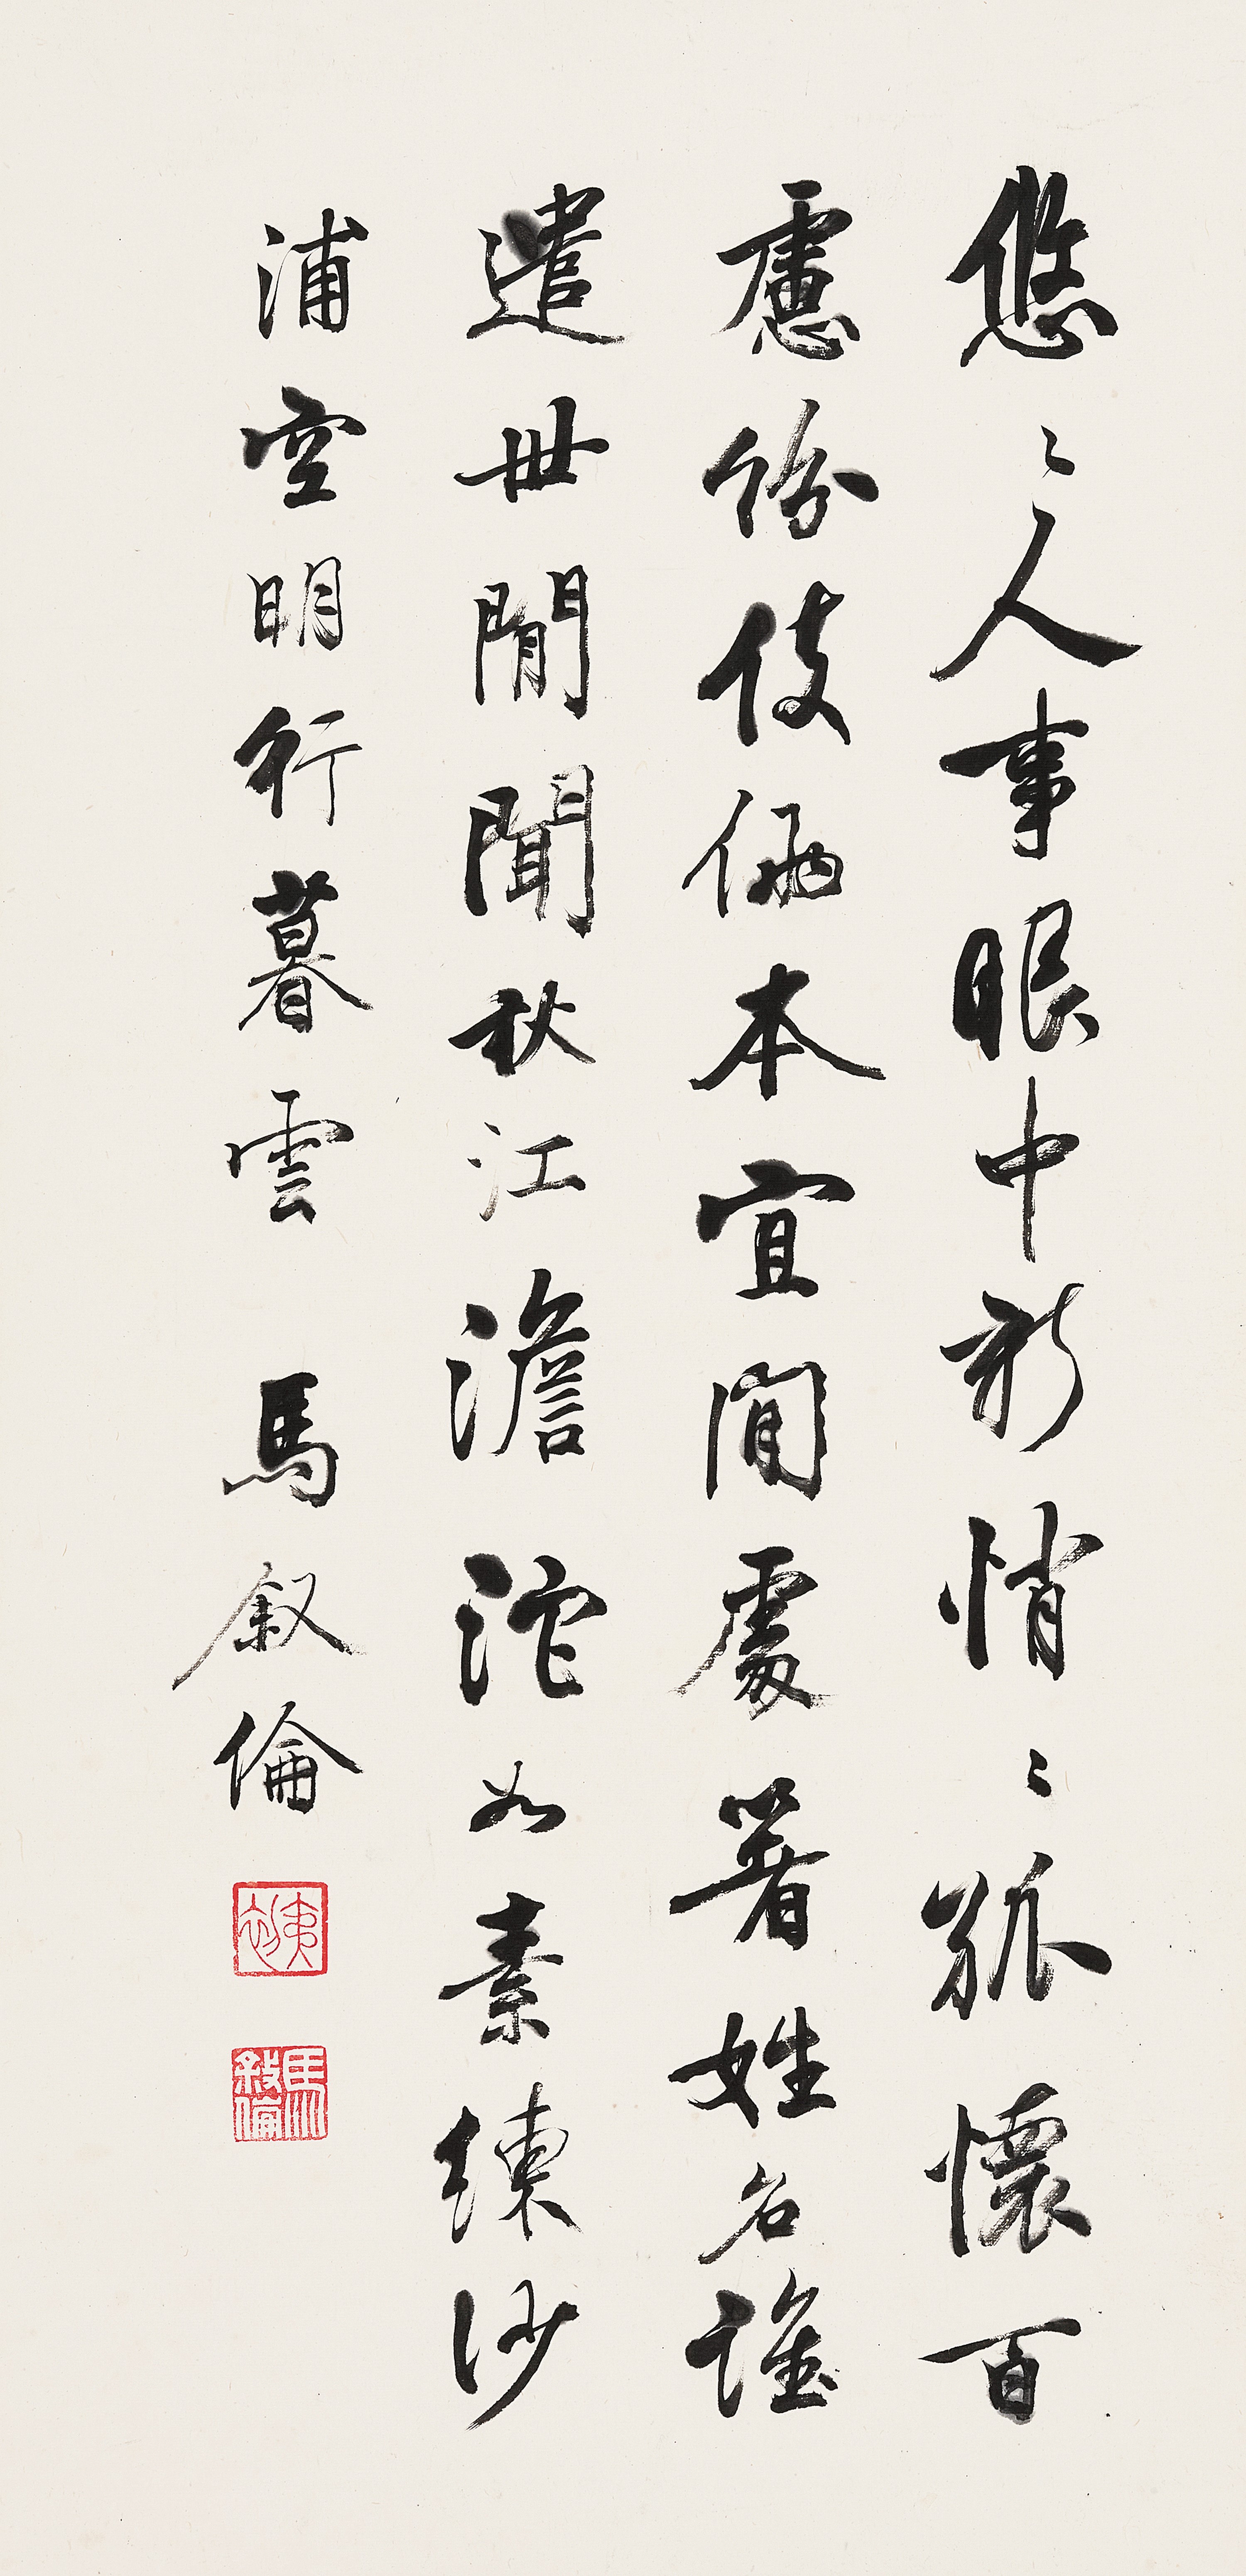 悠〻人事眼中新悄〻孤懷百
慮紛伎倆本宜閒處著姓名誰
遣世閒聞秋江澹沱如素練沙
浦空明行暮雲 馬叙倫
夷初
馬敘倫